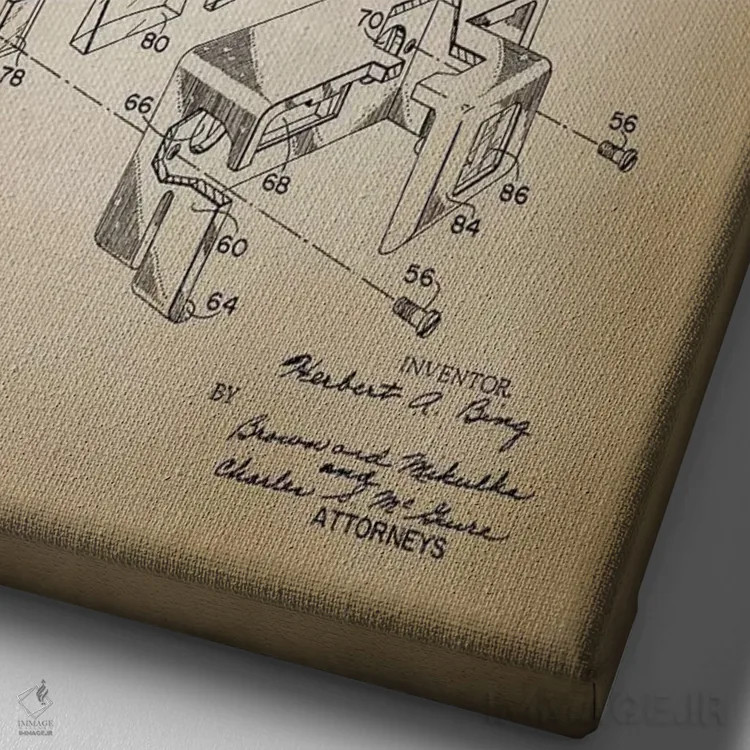 70
80
78
56
66
68
86
84
60
56
64
INVENTOR
Herbert A. Bing
BY
Brown and Mikulka
and
Charles S. McGuire
ATTORNEYS
IMMAGE
IMMAGE.IR
IMMAGE.IR